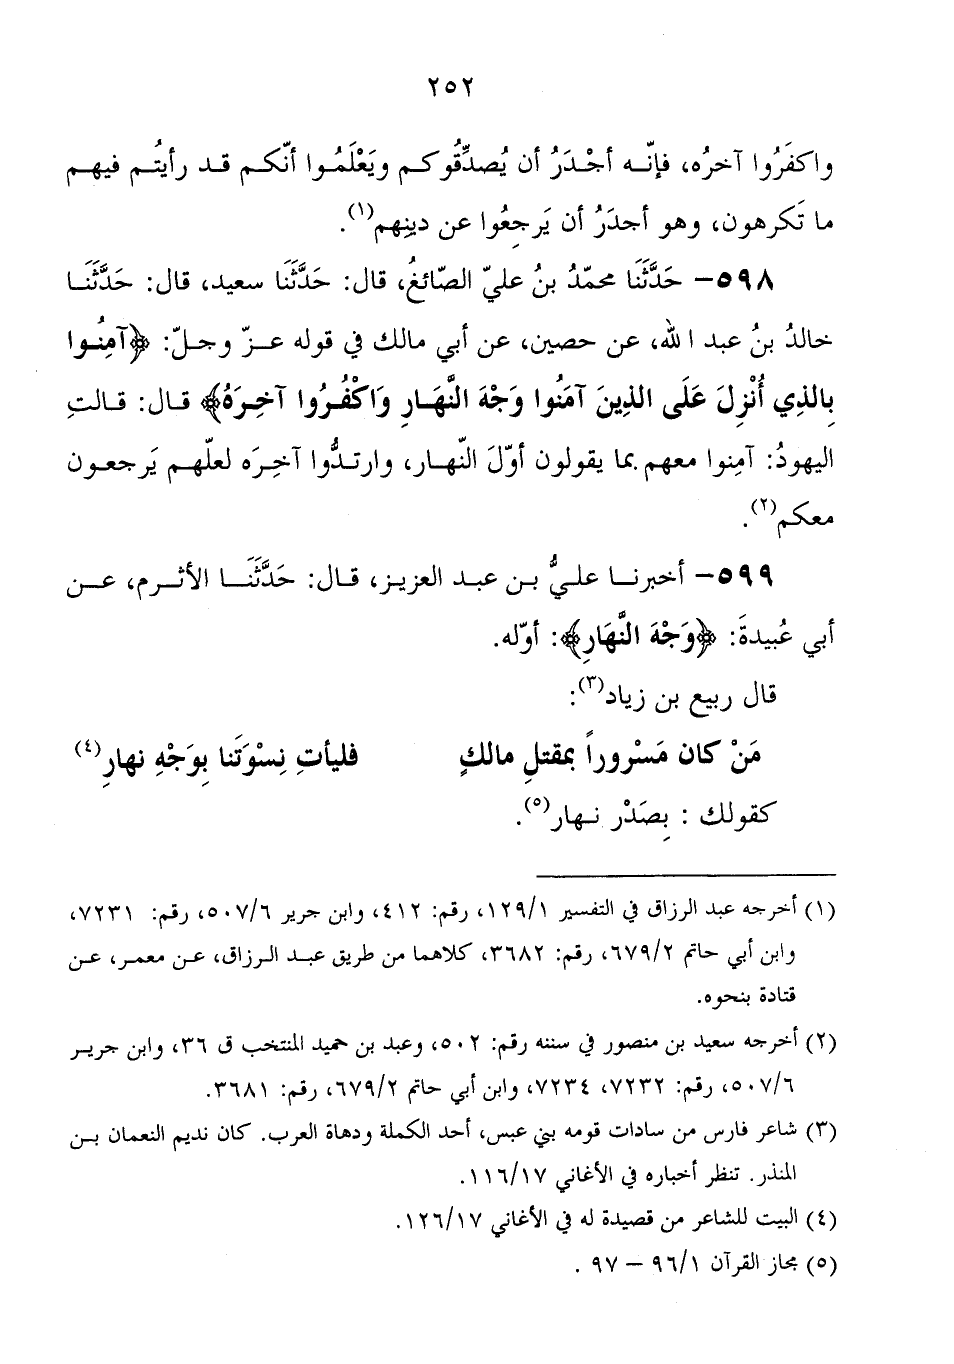 ٢٥٢
واكفَرُوا آخرُه، فإنّـه أجْدَرُ أن يُصدِّقُوكـم ويَعْلَمُـوا أنّكـم قـد رأيتُـم فيهـم
ما تَكرهون، وهو أجدَرُ أن يَرجِعُوا عن دينِهم(١).
٥٩٨- حَدَّثَنَا محمّدُ بنُ عليّ الصّائغُ، قال: حَدَّثَنَا سعيد، قال: حَدَّثَنَـا
خالدُ بنُ عبد الله، عن حصين، عن أبي مالك في قوله عـزّ وجـلّ: ﴿آمِنُـوا
بِالذِي أُنْزِلَ عَلَى الذِينَ آمَنُوا وَجْهَ النَّهَـارِ وَاكْفُـرُوا آخِـرَهُ﴾ قـال: قـالتِ
اليهودُ: آمِنوا معهم بما يقولون أوّلَ النّهـار، وارتـدُّوا آخـِرَه لعلّهـم يَرجعـون
معكم(٢).
٥٩٩- أخبرنـا علـيُّ بـن عبـد العزيـز، قـال: حَدَّثَنَـا الأثـرم، عـن
أبي عُبيدةَ: ﴿وَجْهَ النَّهَارِ﴾: أوّله.
قال ربيع بن زياد(٣):
مَنْ كان مَسْروراً بمقتلِ مالكٍ فليأتِ نِسْوَتَنا بِوَجْهِ نهارِ(٤)
كقولك : بِصَدْر نـهار(٥).
(١) أخرجه عبد الرزاق في التفسير ١٢٩/١، رقم: ٤١٢، وابن جرير ٥٠٧/٦، رقم: ٧٢٣١،
وابن أبي حاتم ٦٧٩/٢، رقم: ٣٦٨٢، كلاهما من طريق عبـد الـرزاق، عـن معمـر، عـن
قتادة بنحوه.
(٢) أخرجه سعيد بن منصور في سننه رقم: ٥٠٢، وعبد بن حميد المنتخب ق ٣٦، وابن جريـر
٥٠٧/٦، رقم: ٧٢٣٢، ٧٢٣٤، وابن أبي حاتم ٦٧٩/٢، رقم: ٣٦٨١.
(٣) شاعر فارس من سادات قومه بني عبس، أحد الكملة ودهاة العرب. كان نديم النعمان بـن
المنذر. تنظر أخباره في الأغاني ١١٦/١٧.
(٤) البيت للشاعر من قصيدة له في الأغاني ١٢٦/١٧.
(٥) مجاز القرآن ٩٦/١ – ٩٧ .